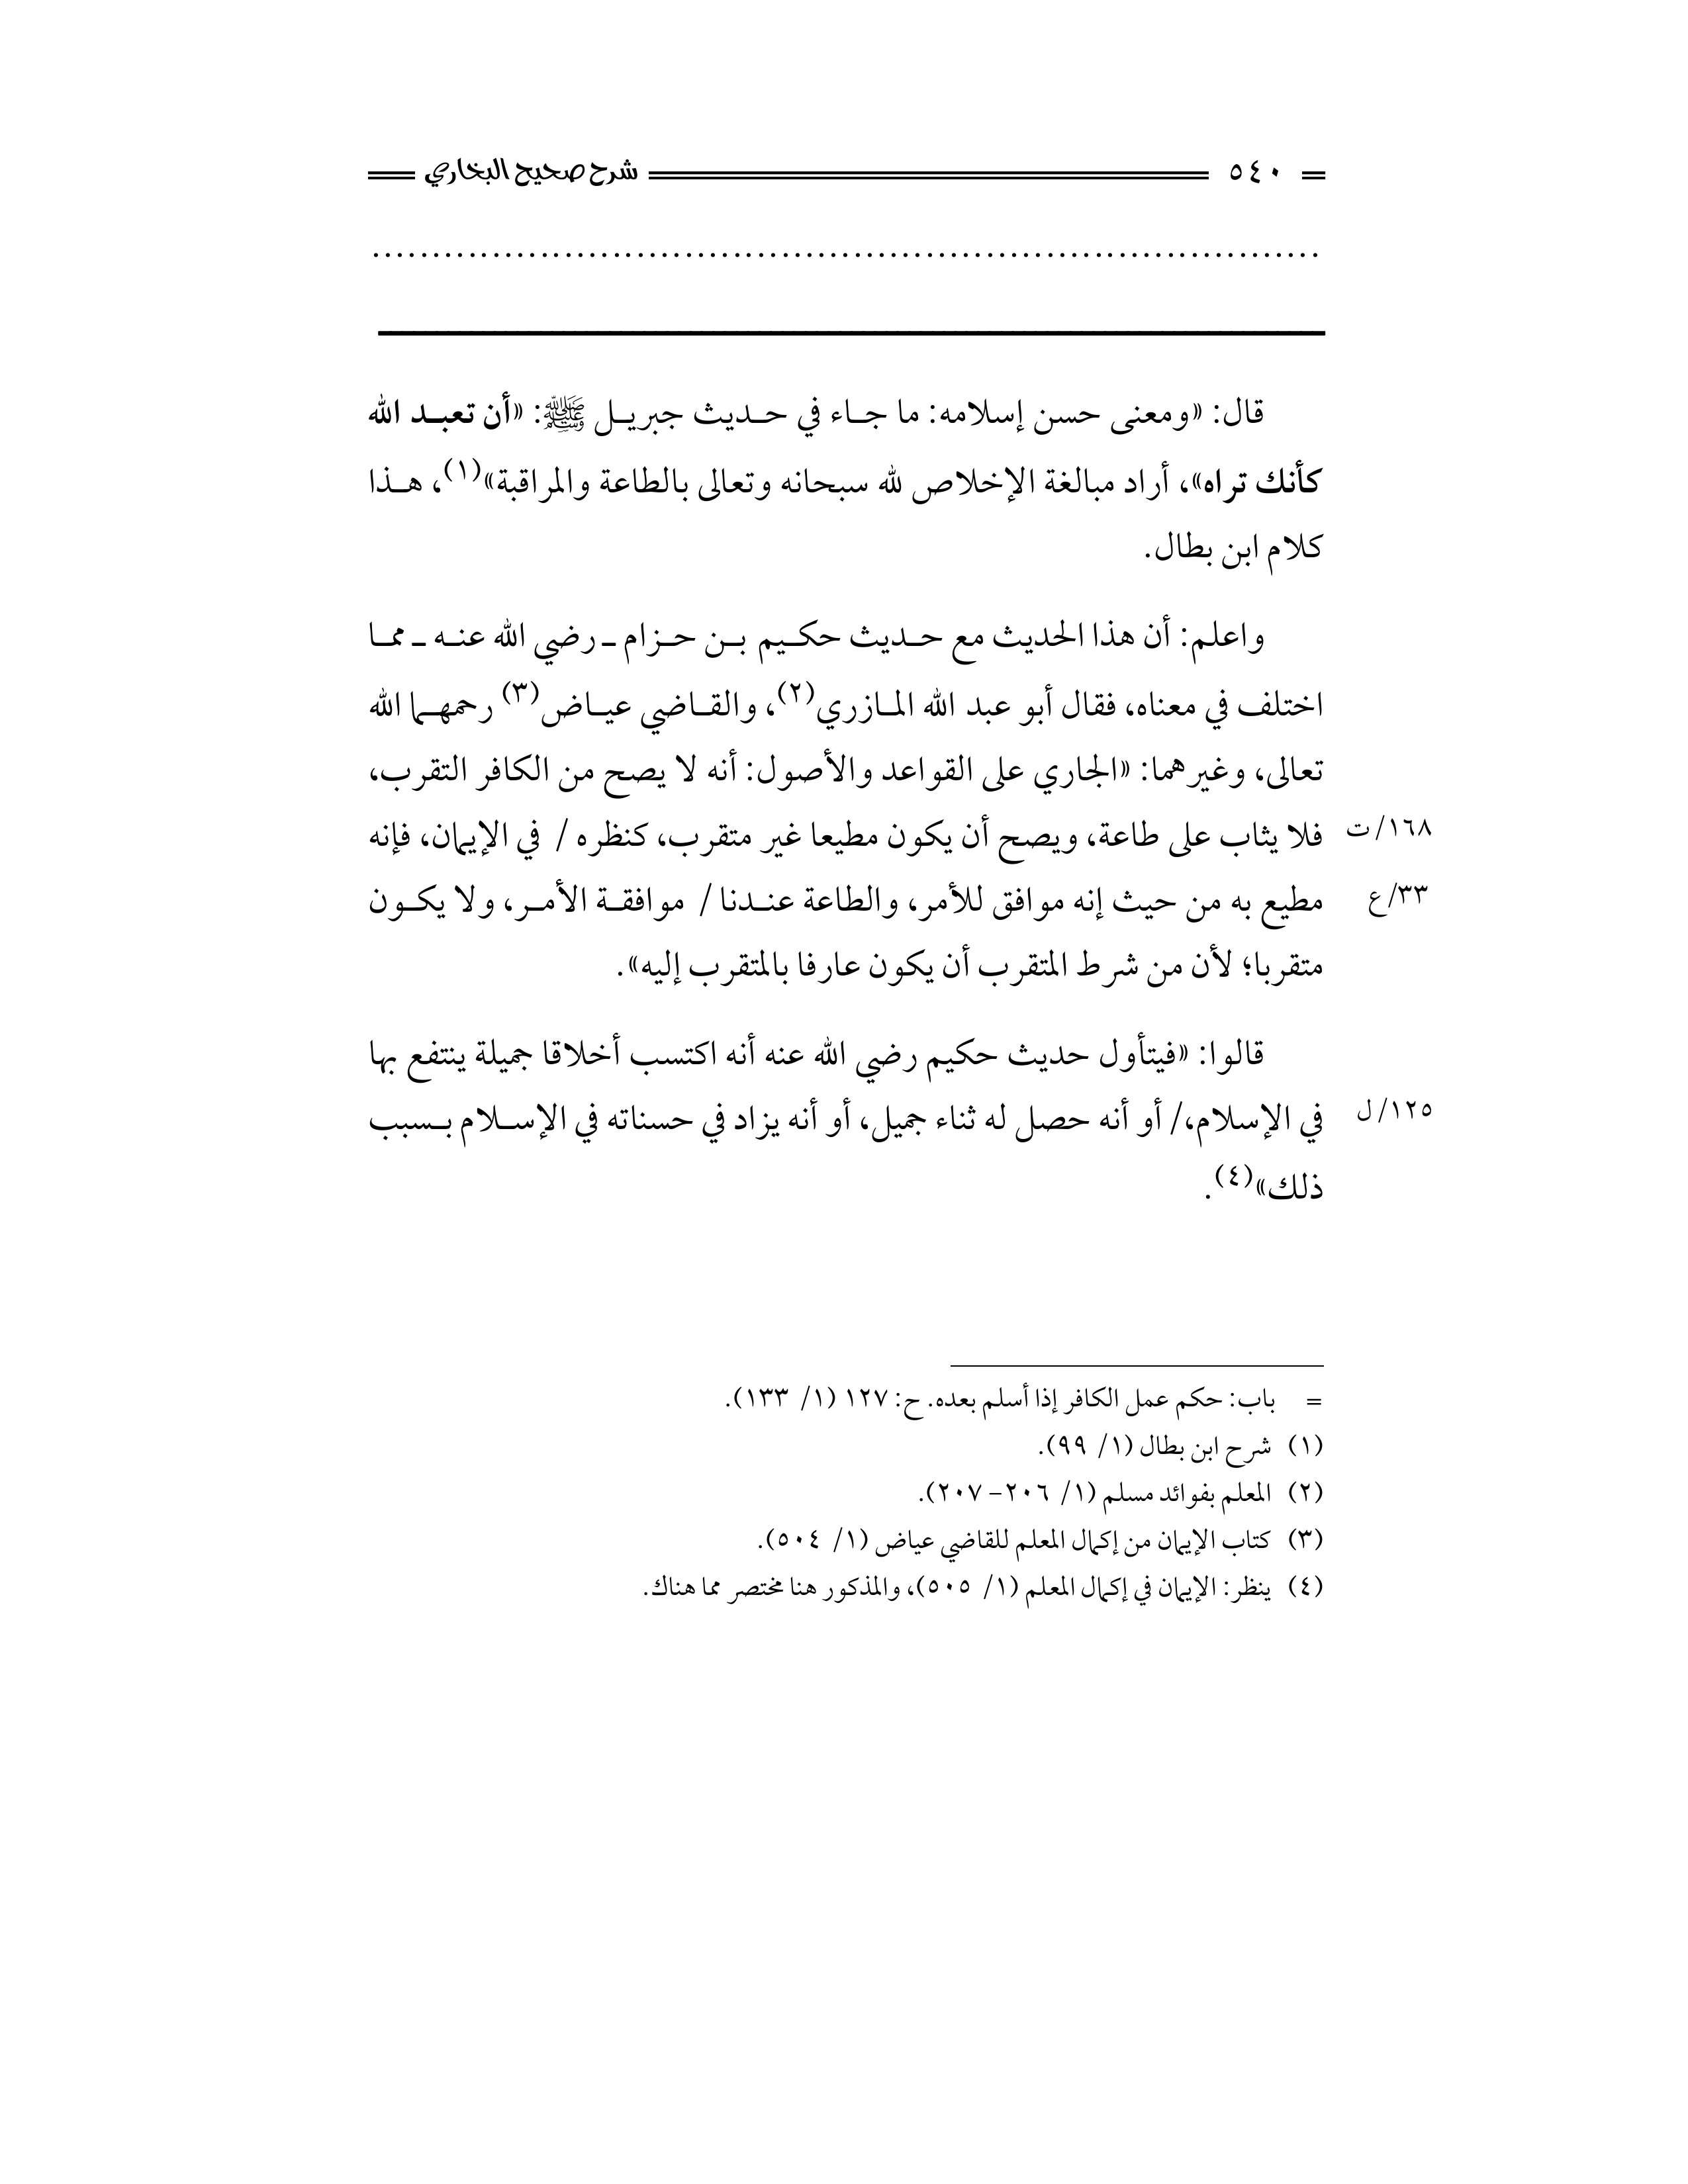 ٥٤٠ شرح صحيح البخاري
................................................................................
قال: «ومعنى حسن إسلامه: ما جـاء في حـديث جبريـل ﷺ: «أن تعبـد الله
كأنك تراه»، أراد مبالغة الإخلاص لله سبحانه وتعالى بالطاعة والمراقبة»(١)، هـذا
كلام ابن بطال.
واعلم: أن هذا الحديث مع حـديث حكـيم بـن حـزام ـ رضي الله عنـه ـ ممـا
اختلف في معناه، فقال أبو عبد الله المـازري(٢)، والقـاضي عيـاض(٣) رحمهـما الله
تعالى، وغيرهما: «الجاري على القواعد والأصول: أنه لا يصح من الكافر التقرب،
١٦٨/ت فلا يثاب على طاعة، ويصح أن يكون مطيعا غير متقرب، كنظره / في الإيمان، فإنه
٣٣/ع مطيع به من حيث إنه موافق للأمر، والطاعة عنـدنا / موافقـة الأمـر، ولا يكـون
متقربا؛ لأن من شرط المتقرب أن يكون عارفا بالمتقرب إليه».
قالوا: «فيتأول حديث حكيم رضي الله عنه أنه اكتسب أخلاقا جميلة ينتفع بها
١٢٥/ل في الإسلام،/ أو أنه حصل له ثناء جميل، أو أنه يزاد في حسناته في الإسـلام بـسبب
ذلك»(٤).
= باب: حكم عمل الكافر إذا أسلم بعده. ح: ١٢٧ (١/ ١٣٣).
(١) شرح ابن بطال (١/ ٩٩).
(٢) المعلم بفوائد مسلم (١/ ٢٠٦– ٢٠٧).
(٣) كتاب الإيمان من إكمال المعلم للقاضي عياض (١/ ٥٠٤).
(٤) ينظر: الإيمان في إكمال المعلم (١/ ٥٠٥)، والمذكور هنا مختصر مما هناك.